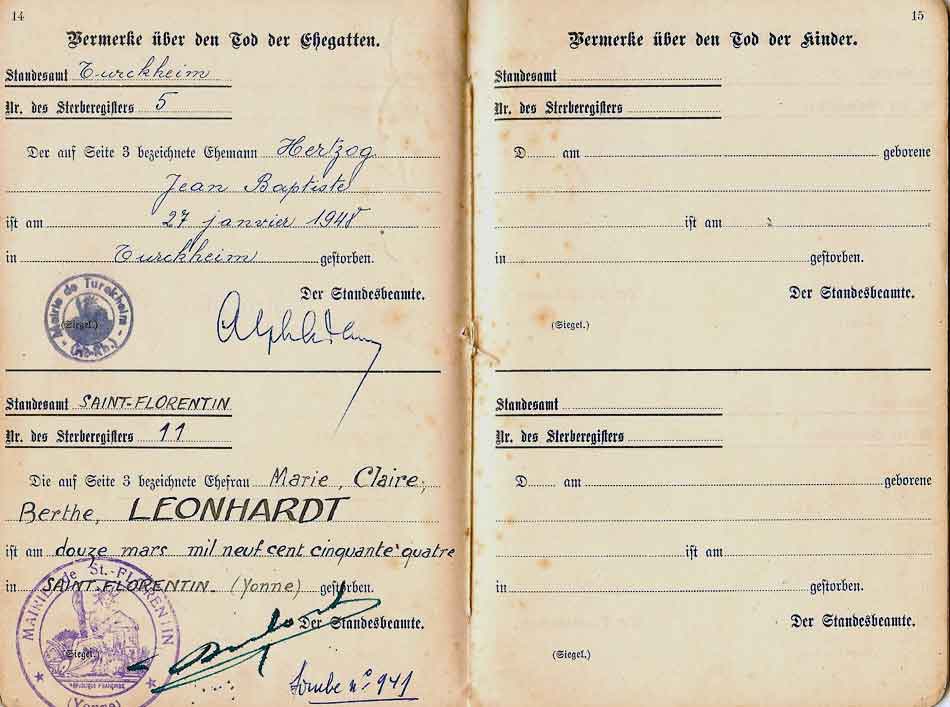 14
Vermerke über den Tod der Ehegatten.
Standesamt Turckheim
Nr. des Sterberegisters 5
Der auf Seite 3 bezeichnete Ehemann Hertzog
Jean Baptiste
ist am 27 janvier 1948
in Turckheim gestorben.
Der Standesbeamte.
Mairie de Turckheim
(Siegel.)
(Ht-Rh.)
Standesamt SAINT-FLORENTIN
Nr. des Sterberegisters 11
Die auf Seite 3 bezeichnete Ehefrau Marie, Claire,
Berthe, LEONHARDT
ist am douze mars mil neuf cent cinquante quatre
in SAINT-FLORENTIN (Yonne) gestorben.
MAIRIE de St.-FLORENTIN
Der Standesbeamte.
(Siegel.)
RÉPUBLIQUE FRANÇAISE
(Yonne)
Tombe n° 941
15
Vermerke über den Tod der Kinder.
Standesamt
Nr. des Sterberegisters
D am geborene
ist am
in gestorben.
Der Standesbeamte.
(Siegel.)
Standesamt
Nr. des Sterberegisters
D am geborene
ist am
in gestorben.
Der Standesbeamte.
(Siegel.)